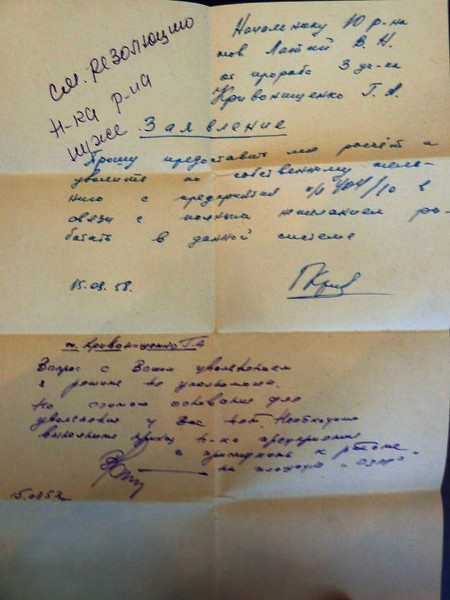 см. резолюцию
н-ка р-на
ниже
Начальнику 10 р-на
тов Латкий В. Н.
от прораба 3 уч-ка
Кривонищенко Г. А.
Заявление
Прошу предоставить мне расчёт и
уволить по собственному жела-
нию с предприятия п/я 404/10 в
связи с полным нежеланием ра-
ботать в данной системе
15.08.58.
т. Кривонищенко Г. А
Вопрос с Вашим увольнением
я решать не уполномочен.
Но считаю основания для
увольнения у Вас нет. Необходимо
выполнить приказ н-ка предприятия
и приступить к работе
на площадке